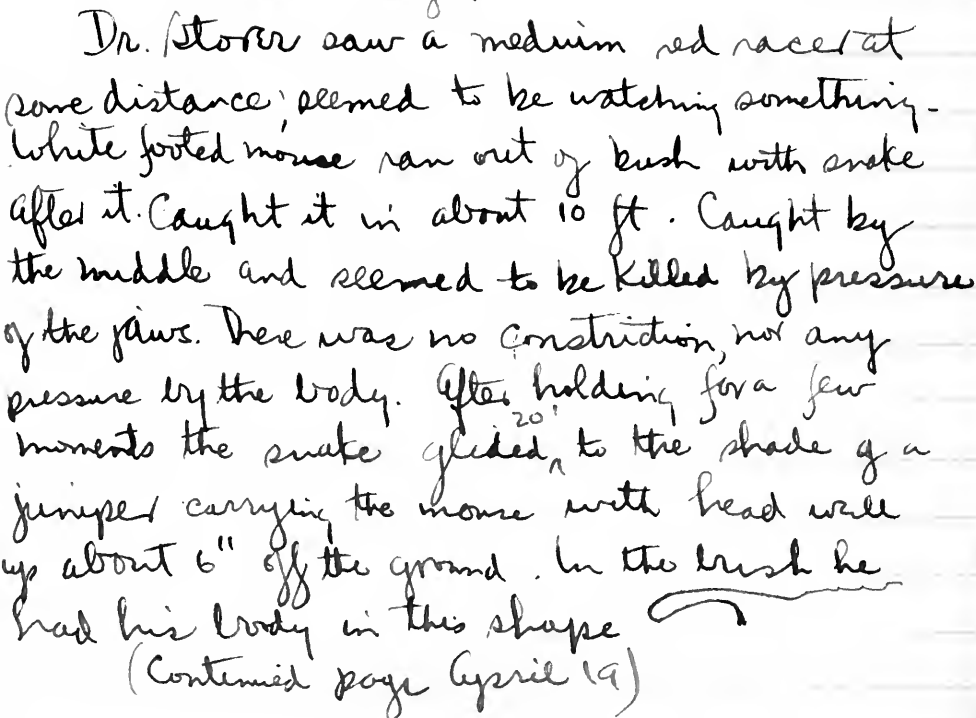 Dr. Storer saw a medium red racer at
some distance; seemed to be watching something.
White footed mouse ran out of bush with snake
after it. Caught it in about 10 ft. Caught by
the middle and seemed to be killed by pressure
of the jaws. There was no constriction, nor any
pressure by the body. After holding for a few
moments the snake glided 20' to the shade of a
juniper carrying the mouse with head well
up about 6" off the ground. In the brush he
had his body in this shape
(Continued page April 19)